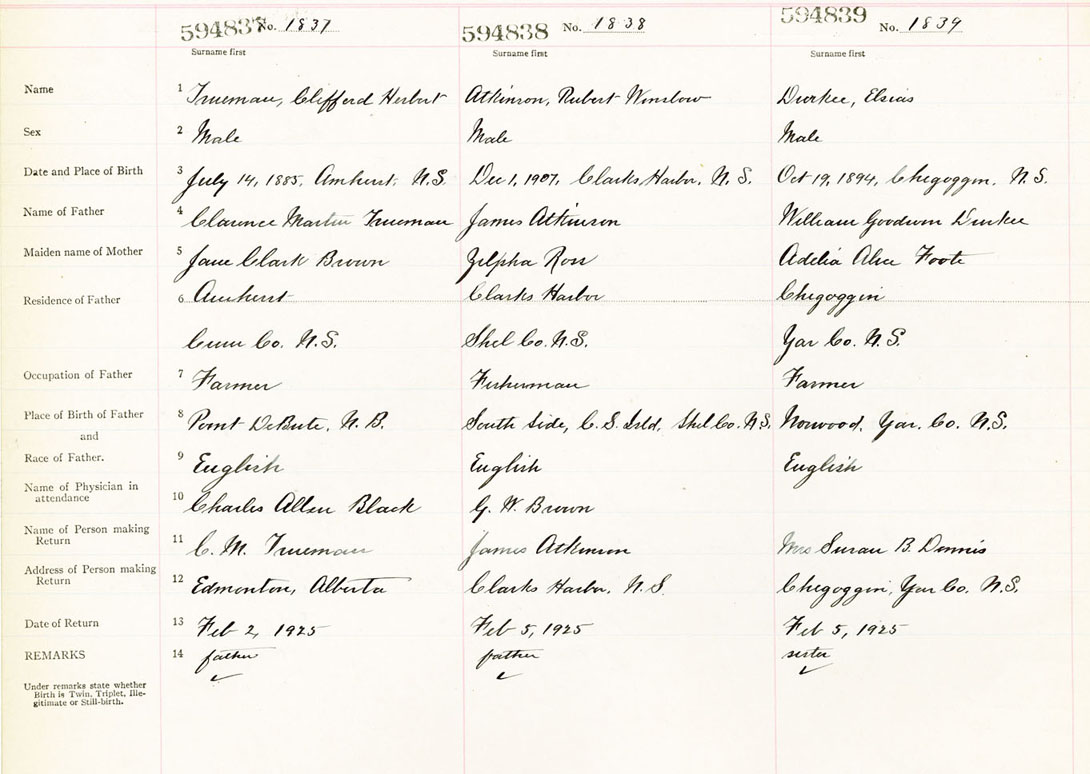 594837 No. 1837
Surname first
594838 No. 1838
Surname first
594839 No. 1839
Surname first
Name 1 Trueman, Clifford Herbert Atkinson, Rubert Winslow Durkee, Elsias
Sex 2 Male Male Male
Date and Place of Birth 3 July 14, 1885, Amherst, N.S. Dec 1, 1907, Clarks Harbor, N.S. Oct 19, 1894, Chegoggin, N.S.
Name of Father 4 Clarence Martin Trueman James Atkinson William Goodwin Durkee
Maiden name of Mother 5 Jane Clark Brown Zilpha Ross Adelia Alice Foote
Residence of Father 6 Amherst Clarks Harbor Chegoggin
Cum Co. N.S. Shel Co. N.S. Yar Co. N.S.
Occupation of Father 7 Farmer Fisherman Farmer
Place of Birth of Father 8 Point DeBute, N.B. South Side, C.S. Isld, Shel Co. N.S. Norwood, Yar. Co. N.S.
and
Race of Father. 9 English English English
Name of Physician in
attendance 10 Charles Allan Black G. W. Brown
Name of Person making
Return 11 C. M. Trueman James Atkinson Mrs Susan B. Dennis
Address of Person making
Return 12 Edmonton, Alberta Clarks Harbor, N.S. Chegoggin, Yar Co. N.S.
Date of Return 13 Feb 2, 1925 Feb 5, 1925 Feb 5, 1925
REMARKS 14 father father sister
Under remarks state whether
Birth is Twin, Triplet, Ille-
gitimate or Still-birth.